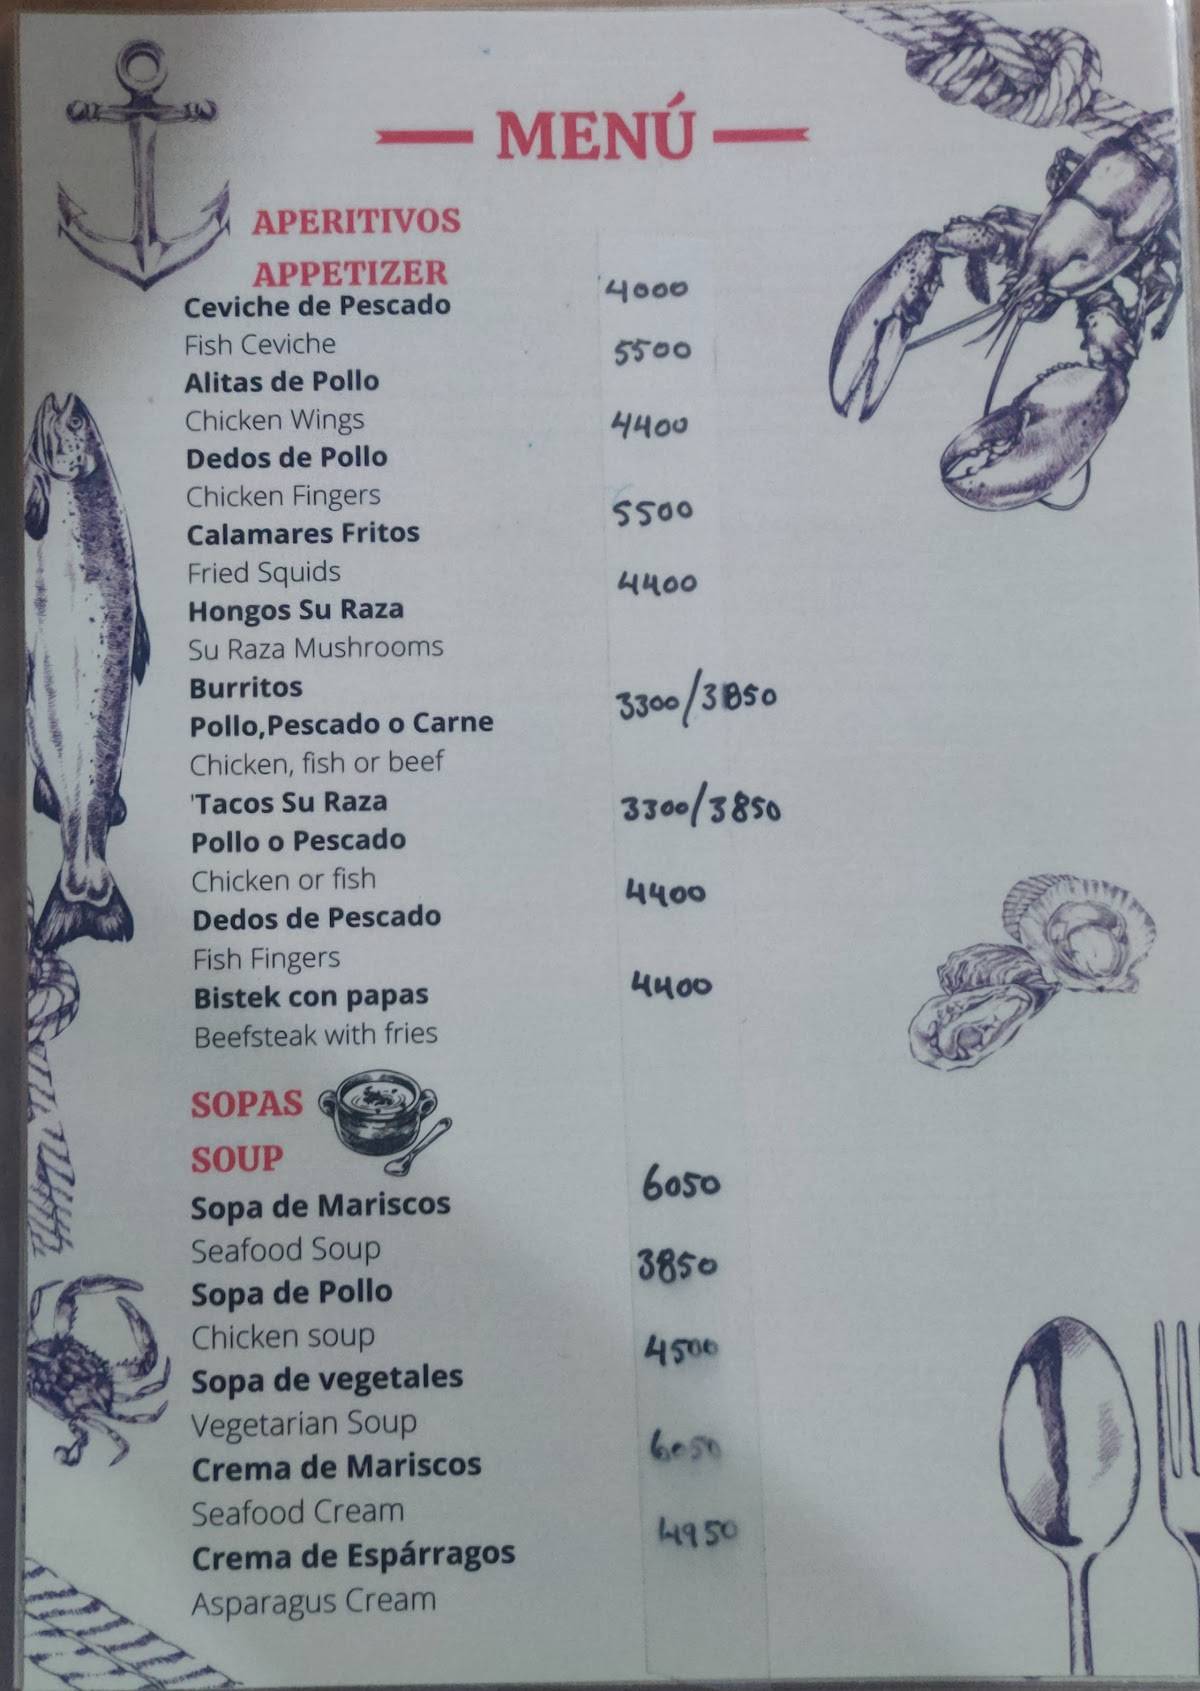 MENÚ
APERITIVOS
APPETIZER
Ceviche de Pescado 4000
Fish Ceviche
Alitas de Pollo 5500
Chicken Wings
Dedos de Pollo 4400
Chicken Fingers
Calamares Fritos 5500
Fried Squids
Hongos Su Raza 4400
Su Raza Mushrooms
Burritos
Pollo,Pescado o Carne 3300/3850
Chicken, fish or beef
'Tacos Su Raza 3300/3850
Pollo o Pescado
Chicken or fish
Dedos de Pescado 4400
Fish Fingers
Bistek con papas 4400
Beefsteak with fries
SOPAS
SOUP
Sopa de Mariscos 6050
Seafood Soup
Sopa de Pollo 3850
Chicken soup
Sopa de vegetales 4500
Vegetarian Soup
Crema de Mariscos 6050
Seafood Cream
Crema de Espárragos 4950
Asparagus Cream